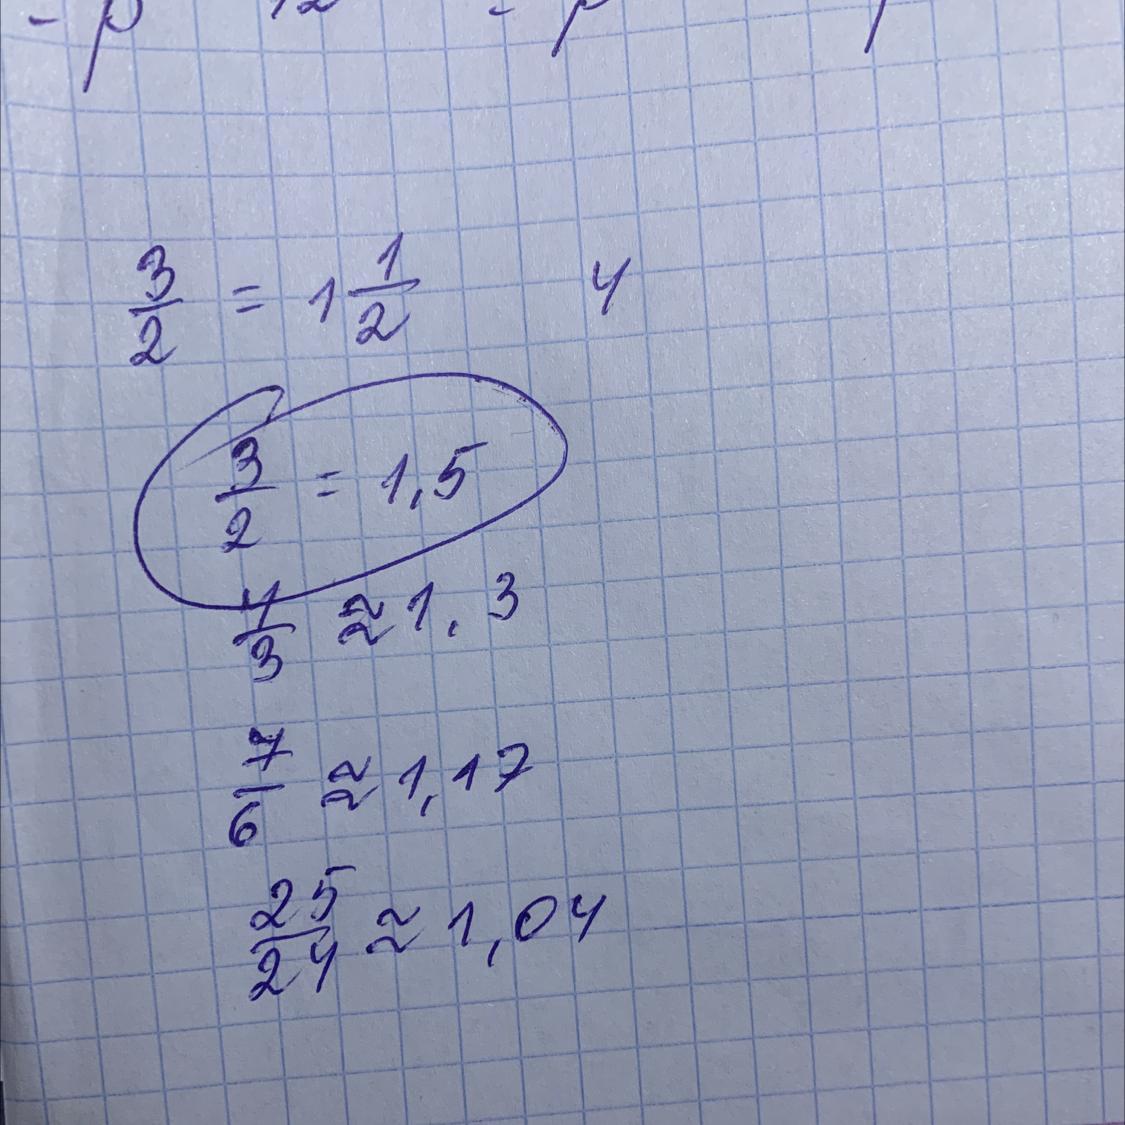 - p 12 - p
3/2 = 1 1/2 4
3/2 = 1,5
4/3 ≈ 1,3
7/6 ≈ 1,17
25/24 ≈ 1,04